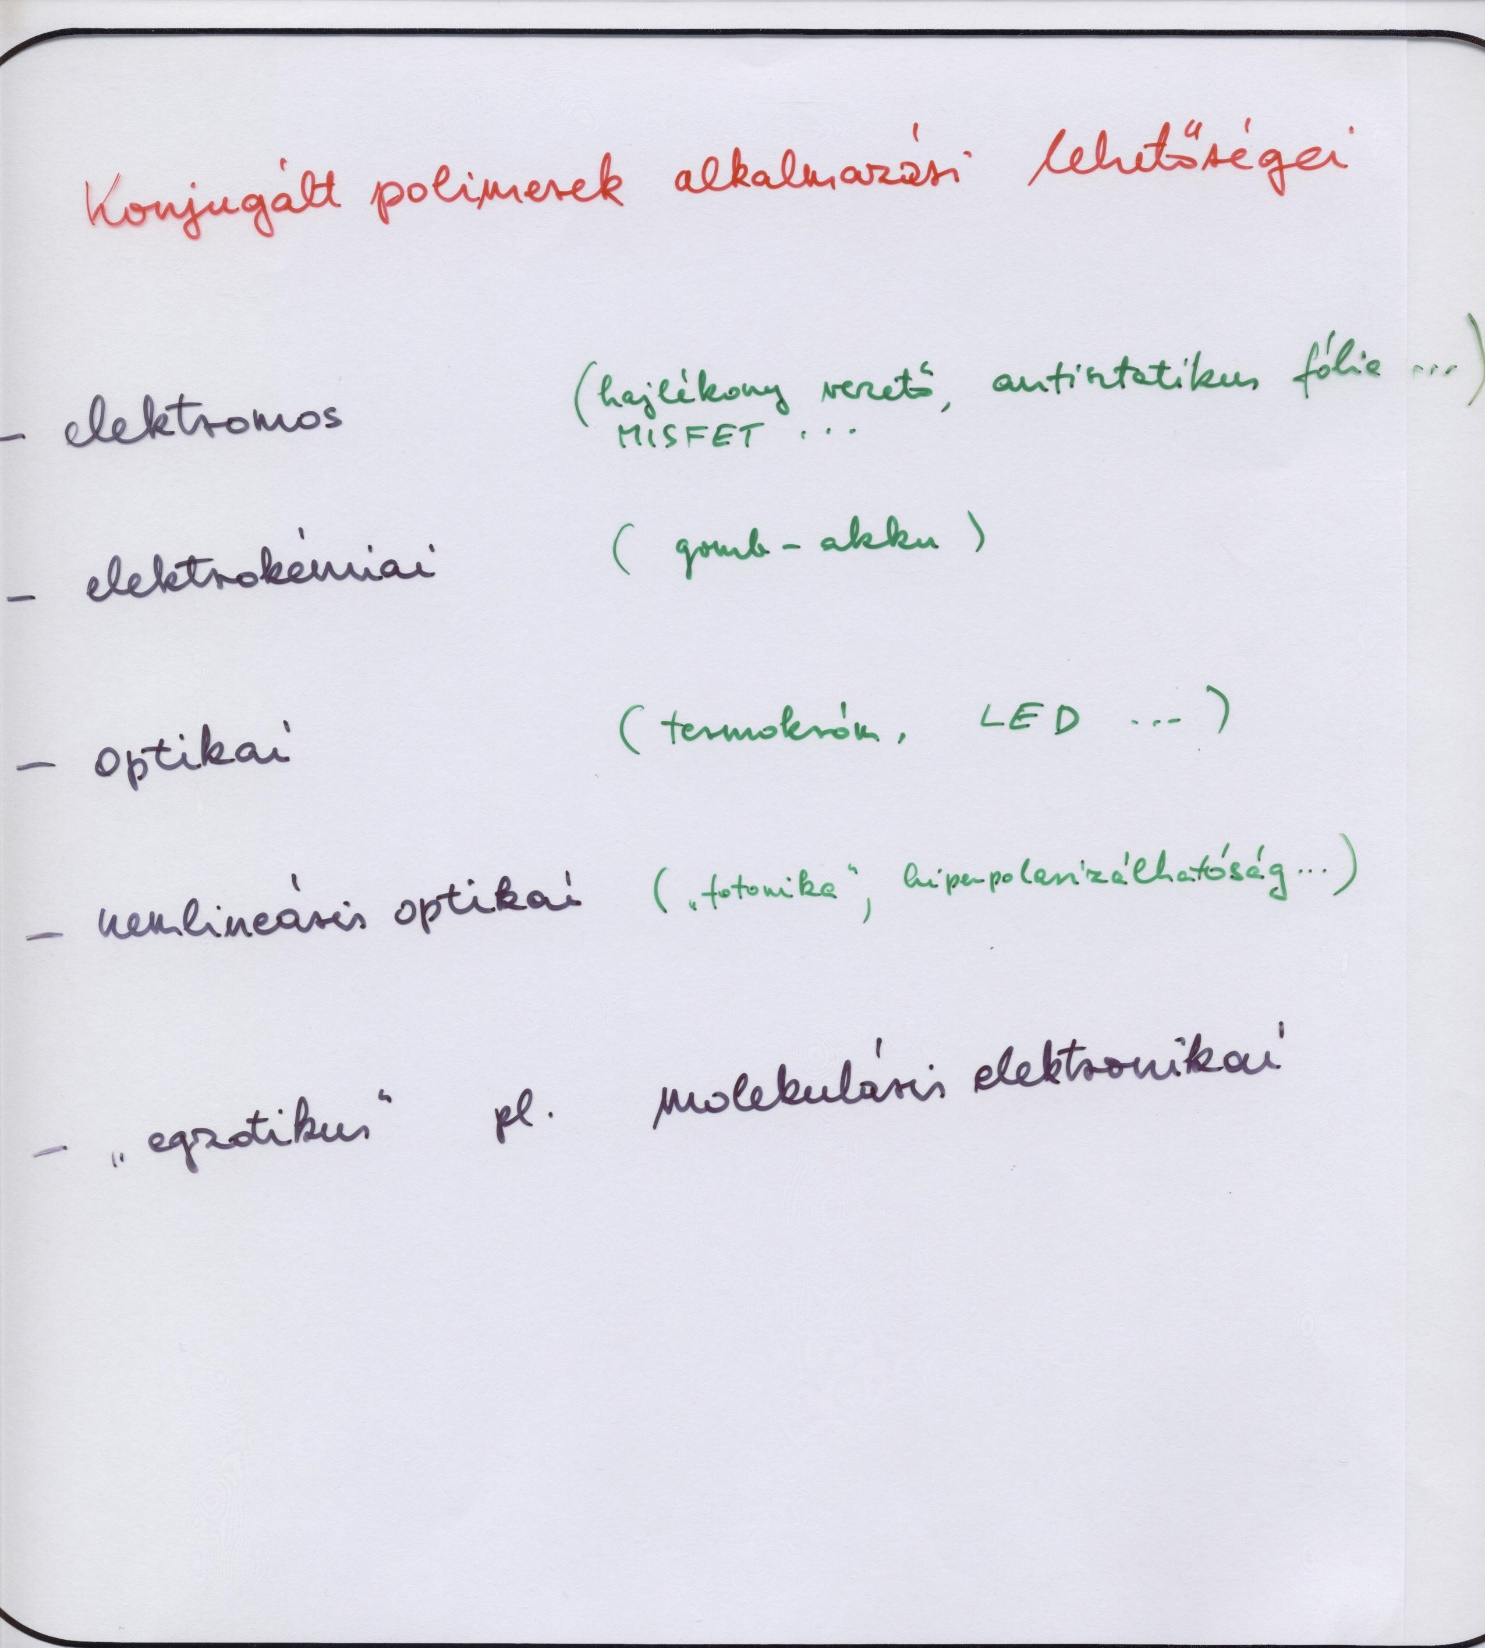 Konjugált polimerek alkalmazási lehetőségei
- elektromos (hajlékony vezető, antisztatikus fólia ...)
MISFET ...
- elektrokémiai (gomb-akku)
- optikai (termokróm, LED ...)
- nemlineáris optikai („fotonika", hiperpolarizálhatóság...)
- „egzotikus" pl. molekuláris elektronikai